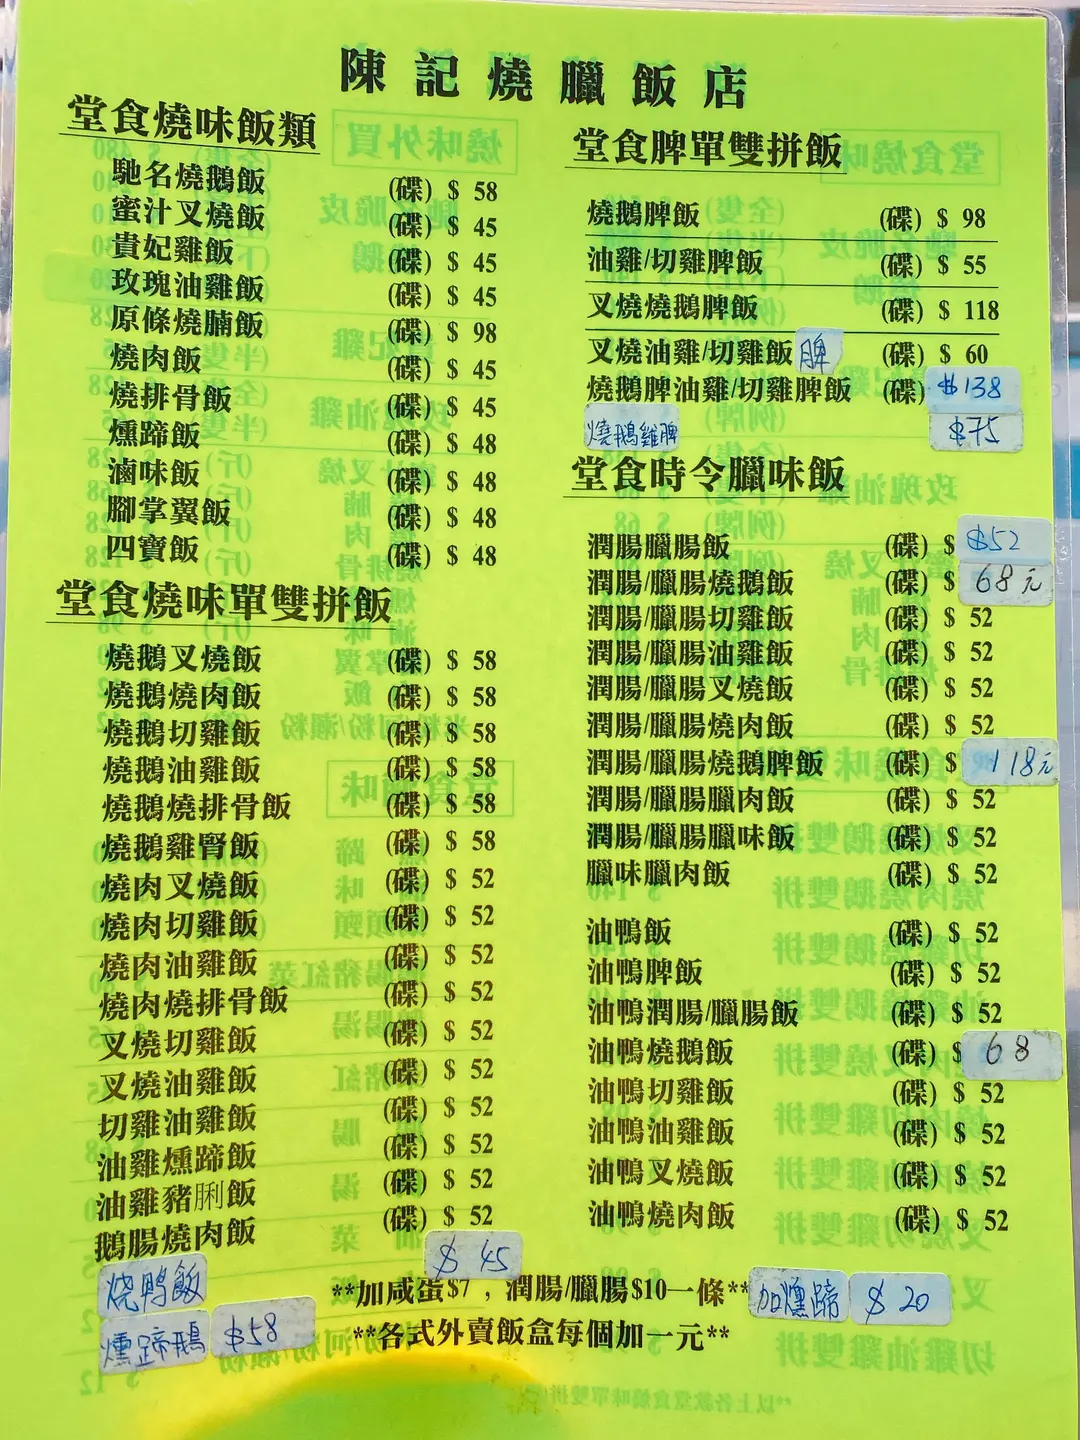 陳記燒臘飯店
堂食燒味飯類
馳名燒鵝飯 (碟) $ 58
蜜汁叉燒飯 (碟) $ 45
貴妃雞飯 (碟) $ 45
玫瑰油雞飯 (碟) $ 45
原條燒腩飯 (碟) $ 98
燒肉飯 (碟) $ 45
燒排骨飯 (碟) $ 45
燻蹄飯 (碟) $ 48
滷味飯 (碟) $ 48
腳掌翼飯 (碟) $ 48
四寶飯 (碟) $ 48
堂食燒味單雙拼飯
燒鵝叉燒飯 (碟) $ 58
燒鵝燒肉飯 (碟) $ 58
燒鵝切雞飯 (碟) $ 58
燒鵝油雞飯 (碟) $ 58
燒鵝燒排骨飯 (碟) $ 58
燒鵝雞腎飯 (碟) $ 58
燒肉叉燒飯 (碟) $ 52
燒肉切雞飯 (碟) $ 52
燒肉油雞飯 (碟) $ 52
燒肉燒排骨飯 (碟) $ 52
叉燒切雞飯 (碟) $ 52
叉燒油雞飯 (碟) $ 52
切雞油雞飯 (碟) $ 52
油雞燻蹄飯 (碟) $ 52
油雞豬脷飯 (碟) $ 52
鵝腸燒肉飯 (碟) $ 52
烧鸭飯 $ 45
燻蹄鵝 $58
堂食脾單雙拼飯
燒鵝脾飯 (碟) $ 98
油雞/切雞脾飯 (碟) $ 55
叉燒燒鵝脾飯 (碟) $ 118
叉燒油雞/切雞飯 脾 (碟) $ 60
燒鵝脾油雞/切雞脾飯 (碟) $138
燒鵝雞脾 $75
堂食時令臘味飯
潤腸臘腸飯 (碟) $ $52
潤腸/臘腸燒鵝飯 (碟) $ 68元
潤腸/臘腸切雞飯 (碟) $ 52
潤腸/臘腸油雞飯 (碟) $ 52
潤腸/臘腸叉燒飯 (碟) $ 52
潤腸/臘腸燒肉飯 (碟) $ 52
潤腸/臘腸燒鵝脾飯 (碟) $ 118元
潤腸/臘腸臘肉飯 (碟) $ 52
潤腸/臘腸臘味飯 (碟) $ 52
臘味臘肉飯 (碟) $ 52
油鴨飯 (碟) $ 52
油鴨脾飯 (碟) $ 52
油鴨潤腸/臘腸飯 (碟) $ 52
油鴨燒鵝飯 (碟) $ 68
油鴨切雞飯 (碟) $ 52
油鴨油雞飯 (碟) $ 52
油鴨叉燒飯 (碟) $ 52
油鴨燒肉飯 (碟) $ 52
**加咸蛋$7 , 潤腸/臘腸$10一條** 加燻蹄 $ 20
**各式外賣飯盒每個加一元**